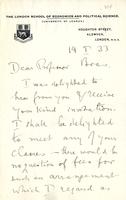 THE LONDON SCHOOL OF ECONOMICS AND POLITICAL SCIENCE
(UNIVERSITY OF LONDON)
HOUGHTON STREET,
ALDWYCH,
LONDON, W.C.2.
Dear Professor Boas,
I was delighted to
hear from you & receive
your kind invitation.
I shall be delighted
to meet any of your
classes – there would be
no question of fees for
such an arrangement
which I regard as